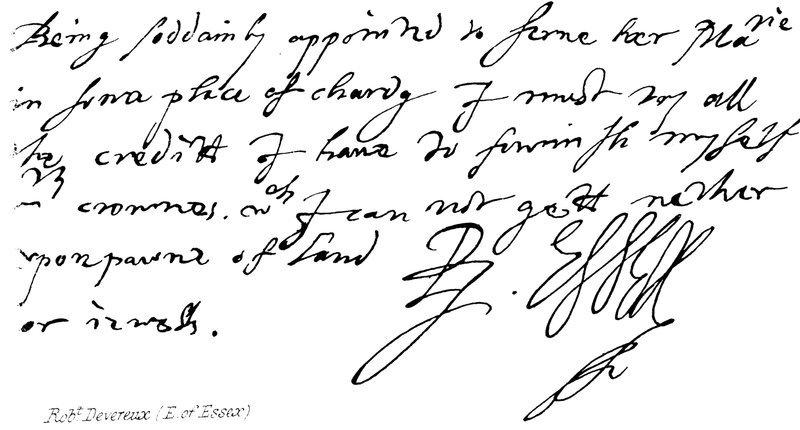 Being soddainly appointed to serue her Matie
in some place of chardg I must try all
the creditt I haue to furnish myself
crownes. wch I can not gett nether
vpon pawne of land R. Essex
or iewells.
Robt. Devereux (E. of Essex)